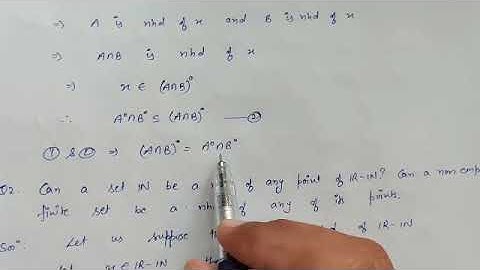 ⇒ A is nhd of x and B is nhd of x
⇒ A∩B is nhd of x
⇒ x ∈ (A∩B)°
∴ A°∩B° ⊆ (A∩B)° —— ②
① & ② ⇒ (A∩B)° = A°∩B°
Q2. Can a set IN be a of any point of IR-IN? Can a non emp
finite set be a nh of any of its points.
Sol": Let us suppose of IR-IN
x ∈ IR-IN